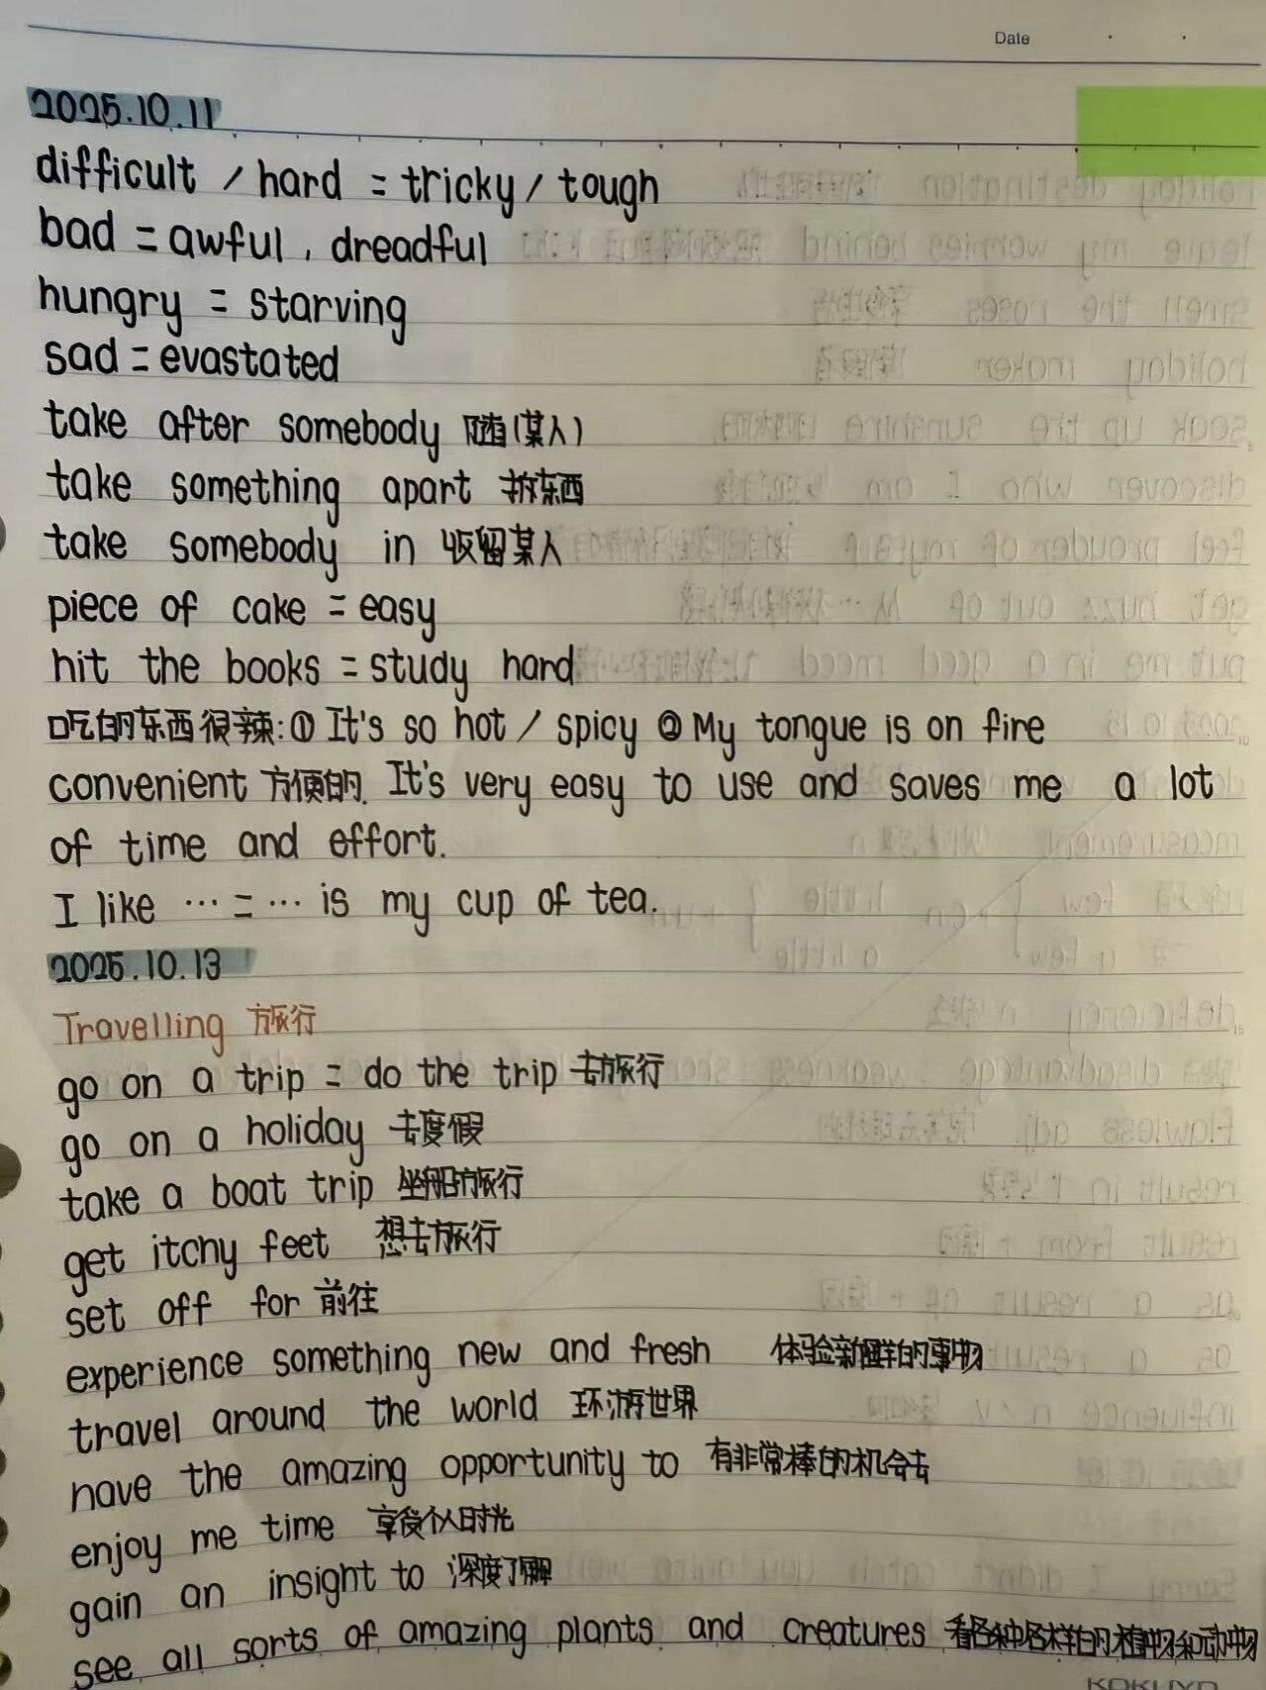 Date
2025.10.11
difficult / hard = tricky / tough
bad = awful , dreadful
hungry = starving
sad = evastated
take after somebody 随(某人)
take something apart 拆东西
take somebody in 收留某人
piece of cake = easy
hit the books = study hard
吃的东西很辣:① It's so hot / spicy ② My tongue is on fire
convenient 方便的. It's very easy to use and saves me a lot
of time and effort.
I like … = … is my cup of tea.
2025.10.13
Travelling 旅行
go on a trip = do the trip 去旅行
go on a holiday 去度假
take a boat trip 坐船旅行
get itchy feet 想去旅行
set off for 前往
experience something new and fresh 体验新鲜的事物
travel around the world 环游世界
have the amazing opportunity to 有非常棒的机会去
enjoy me time 享受个人时光
gain an insight to 深度了解
see all sorts of amazing plants and creatures 看各种各样的植物和动物
KOKUYO